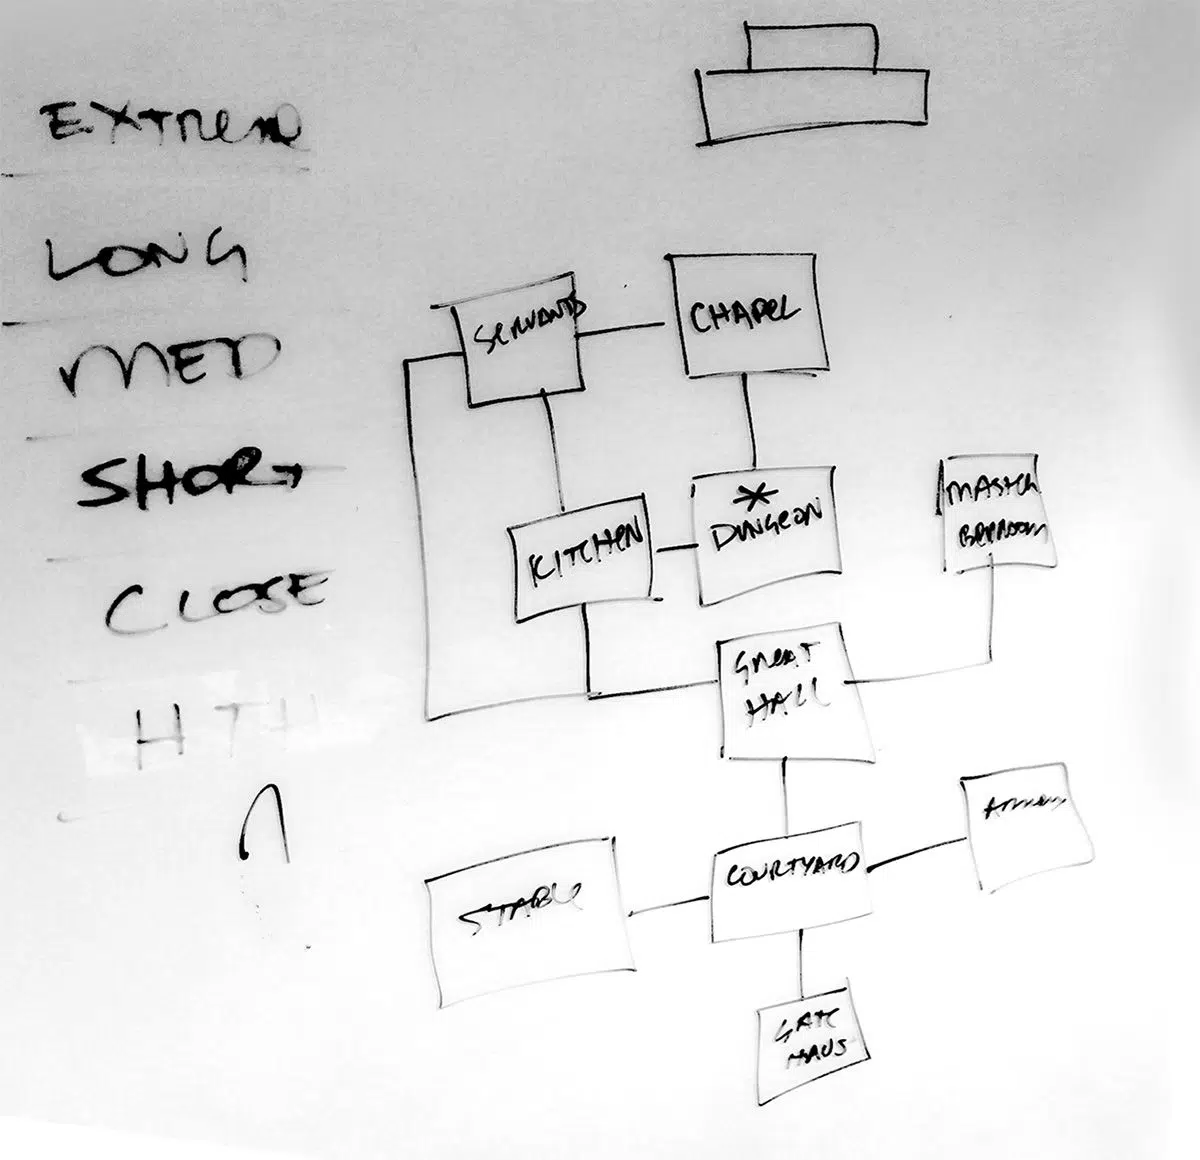 EXTREME
LONG
MED
SHORT
CLOSE
HTH
SERVANTS
CHAPEL
KITCHEN
*
DUNGEON
MASTER
BEDROOM
GREAT
HALL
STABLE
COURTYARD
GATE
HAUS